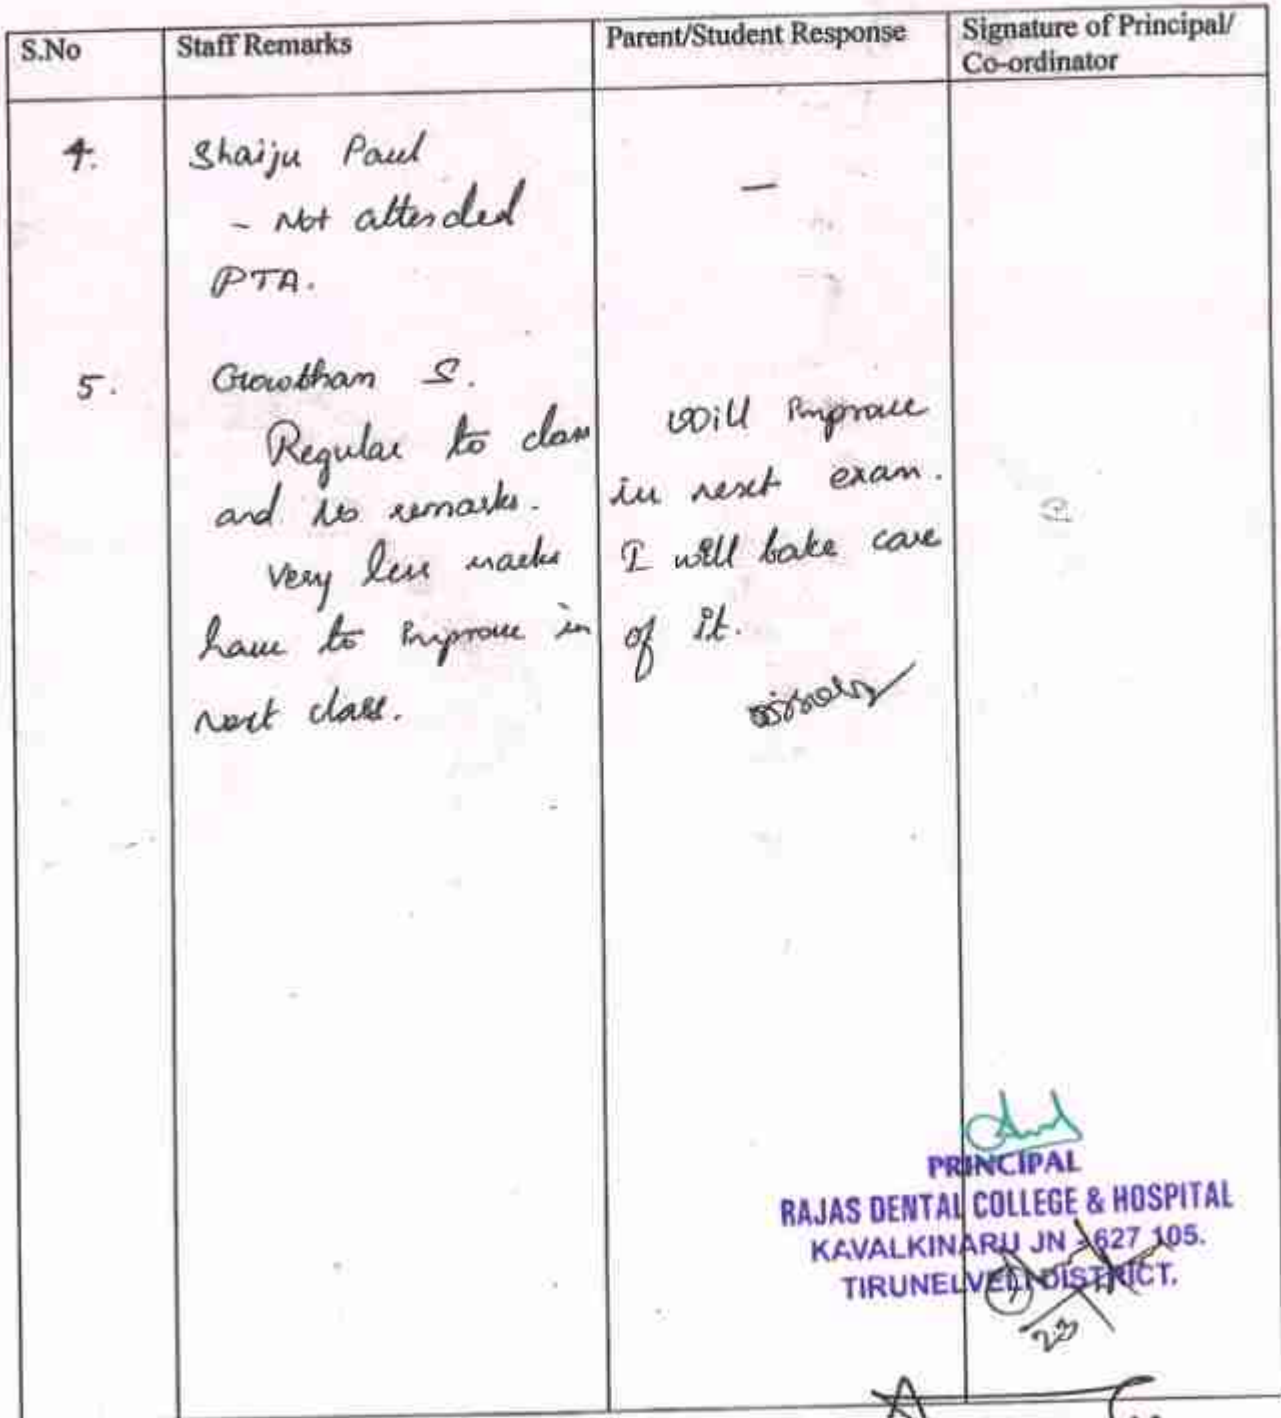 S.No Staff Remarks Parent/Student Response Signature of Principal/
Co-ordinator
4. Shaiju Paul
- Not attended
PTA.
–
5. Gowtham S.
Regular to class
and no remarks.
Very less marks
have to improve in
next class.
Will improve
in next exam.
I will take care
of it.
PRINCIPAL
RAJAS DENTAL COLLEGE & HOSPITAL
KAVALKINARU JN - 627 105.
TIRUNELVELI DISTRICT.